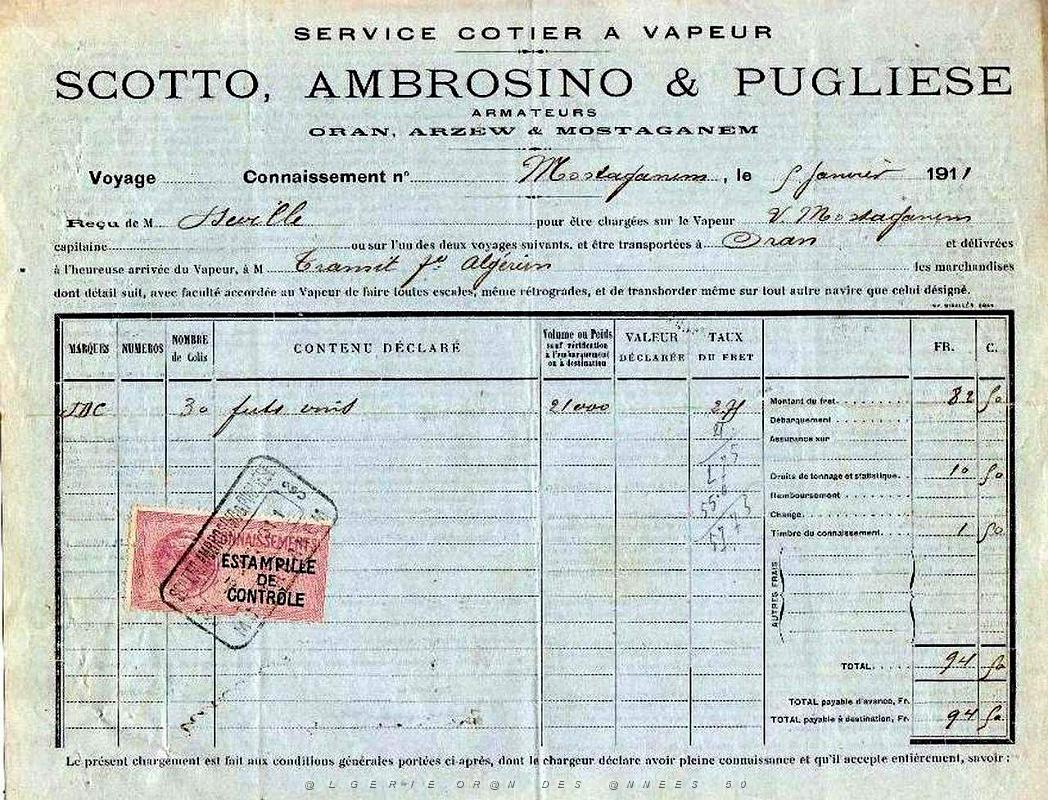 SERVICE COTIER A VAPEUR
SCOTTO, AMBROSINO & PUGLIESE
ARMATEURS
ORAN, ARZEW & MOSTAGANEM
Voyage Connaissement n° Mostaganem, le 5 Janvier 1911
Reçu de M Seville pour être chargées sur le Vapeur V. Mostaganem
capitaine ou sur l'un des deux voyages suivants, et être transportées à Oran et délivrées
à l'heureuse arrivée du Vapeur, à M Transit Algérien les marchandises
dont détail suit, avec faculté accordée au Vapeur de faire toutes escales, même rétrogrades, et de transborder même sur tout autre navire que celui désigné.
MARQUES NUMEROS NOMBRE de Colis CONTENU DÉCLARÉ Volume ou Poids sauf vérification à l'embarquement ou à destination VALEUR DÉCLARÉE TAUX DU FRET FR. C.
30 futs vins 21000 275 Montant du fret 82 50
Débarquement
Assurance sur
Droits de tonnage et statistique 10 50
Remboursement
Change
Timbre du connaissement 1 50
CONNAISSEMENTS
ESTAMPILLE
DE
CONTRÔLE
AUTRES FRAIS
TOTAL 94 50
TOTAL payable d'avance, Fr.
TOTAL payable à destination, Fr. 94 50
Le présent chargement est fait aux conditions générales portées ci-après, dont le chargeur déclare avoir pleine connaissance et qu'il accepte entièrement, savoir :
@LGERIE OR@N DES @NNEES 50